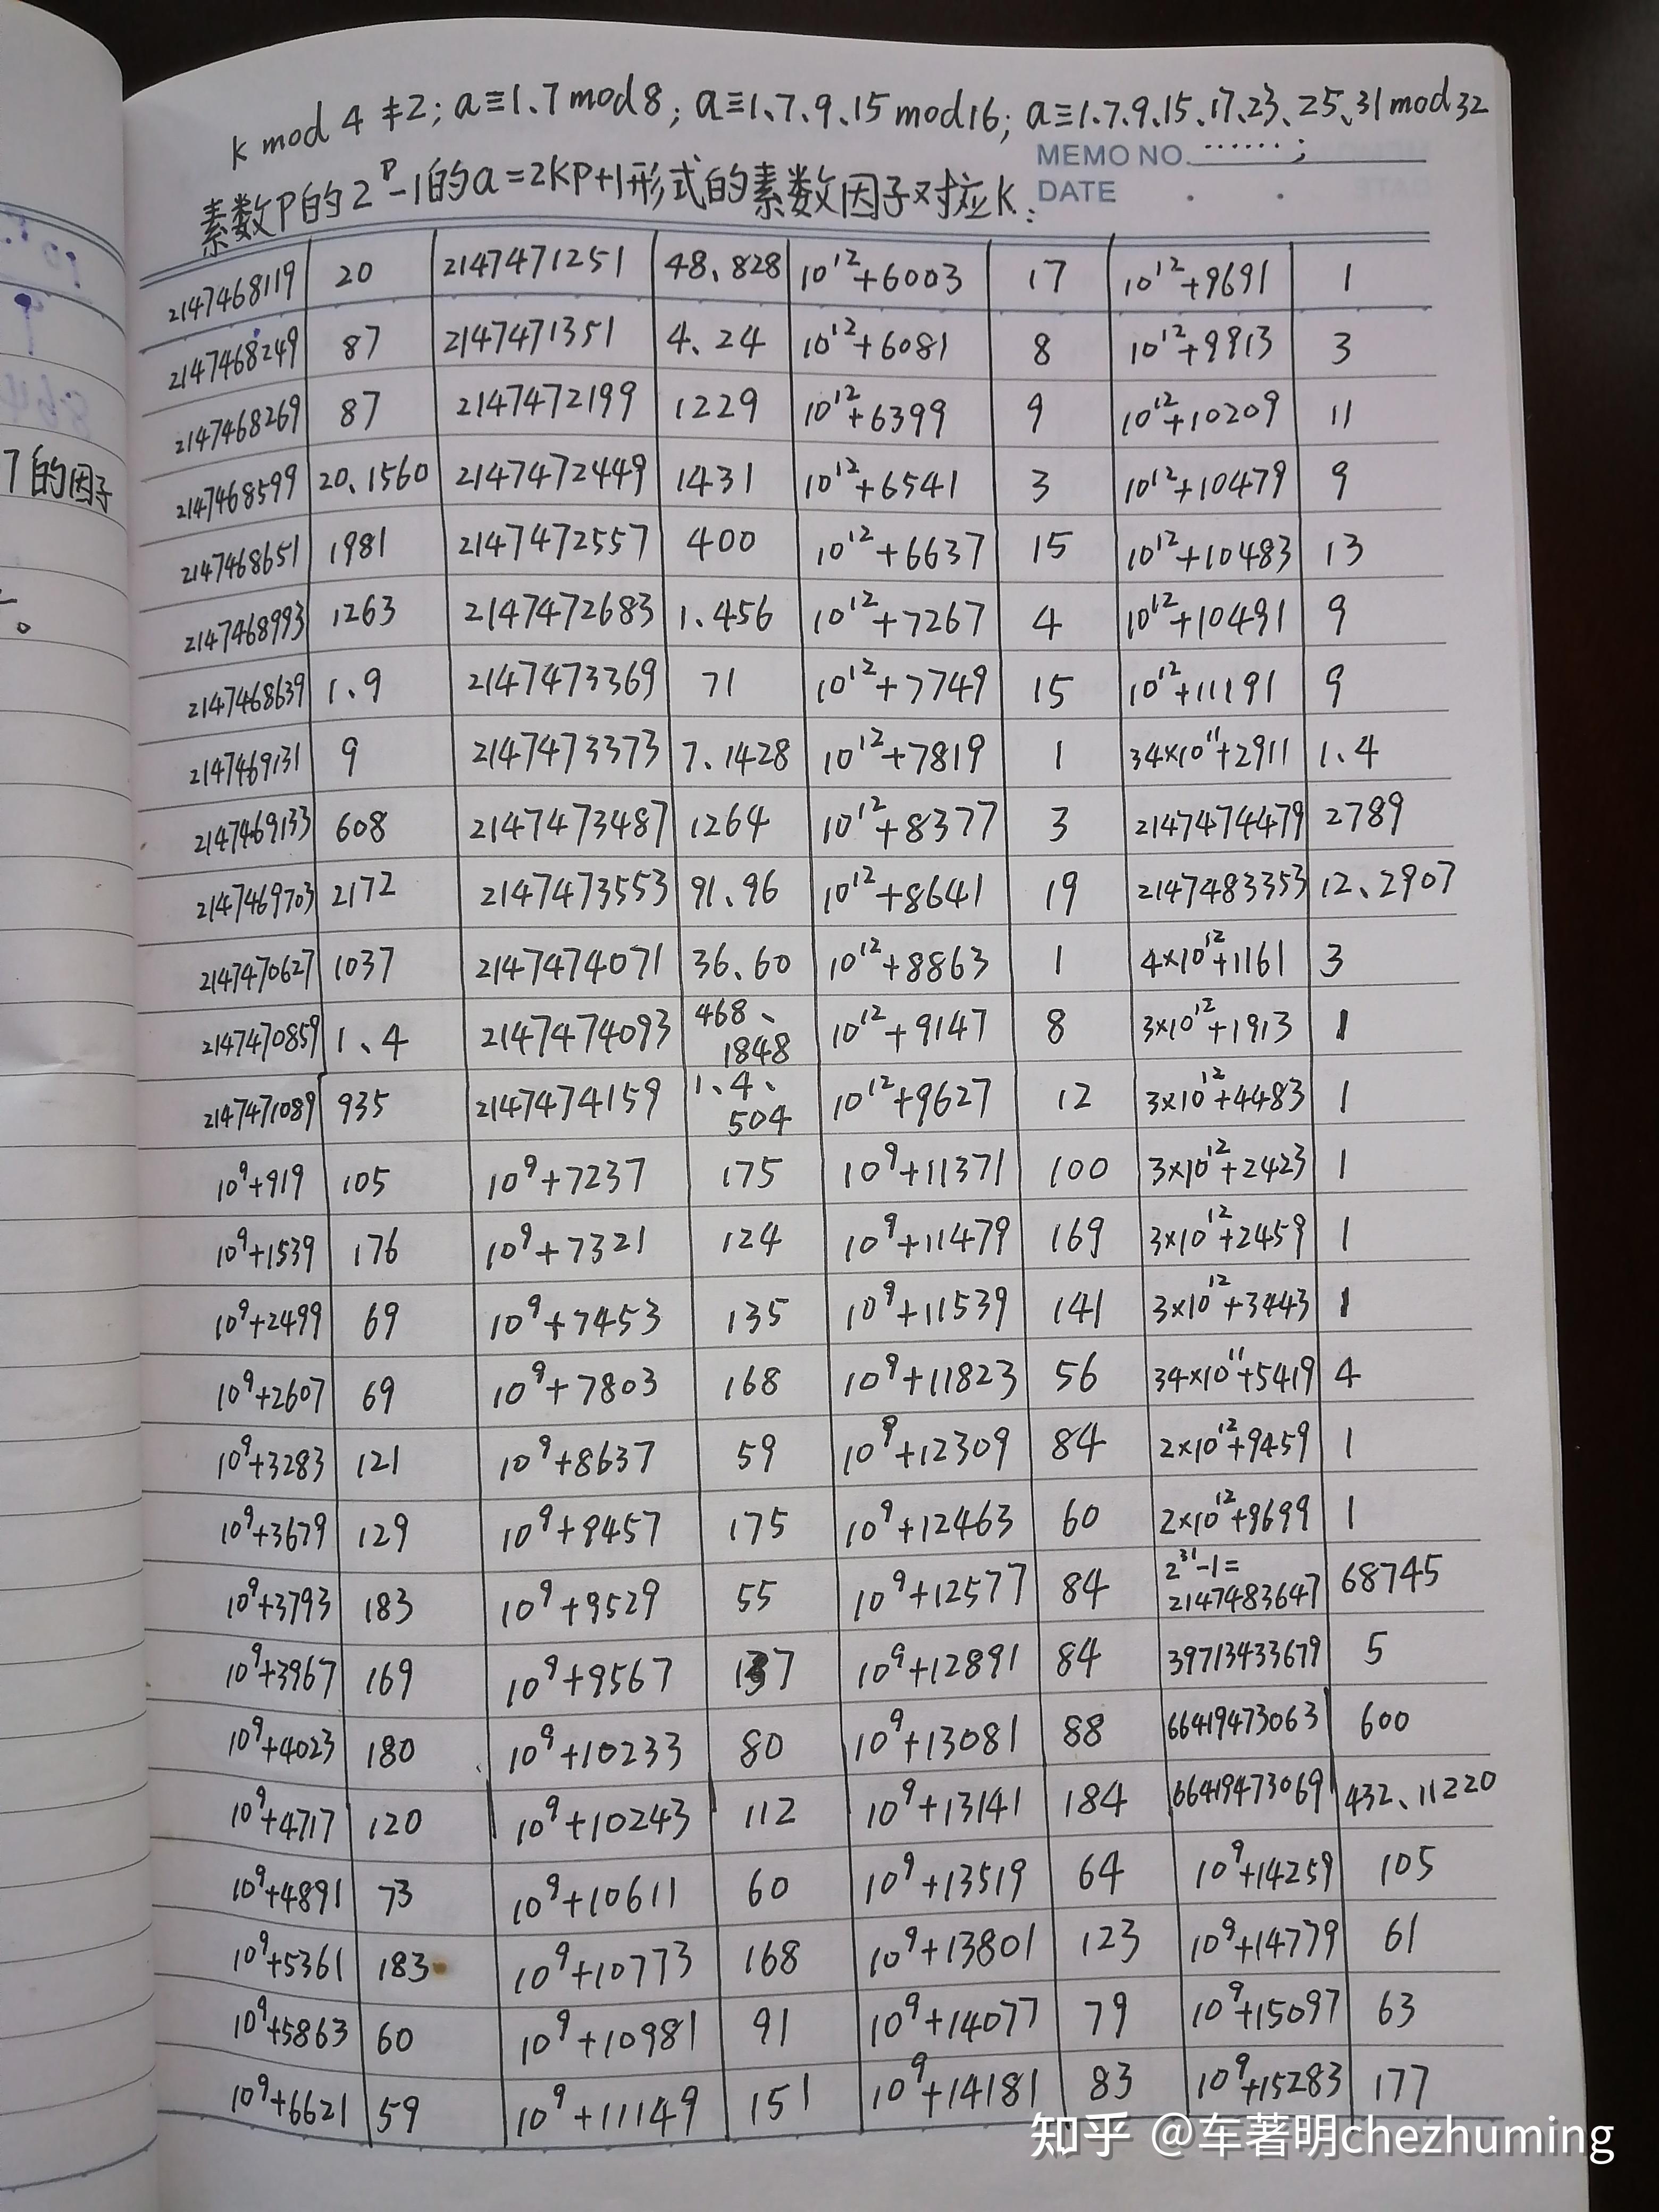 k mod 4 ≠2; a≡1、7 mod 8; a≡1、7、9、15 mod 16; a≡1、7、9、15、17、23、25、31 mod 32
MEMO NO. ;
素数P的2^P-1的a=2KP+1形式的素数因子对应K:
DATE
2147468119 20 2147471251 48、828 10^12+6003 17 10^12+9691 1
2147468249 87 2147471351 4、24 10^12+6081 8 10^12+9913 3
2147468269 87 2147472199 1229 10^12+6399 9 10^12+10209 11
7的因子
2147468599 20、1560 2147472449 1431 10^12+6541 3 10^12+10479 9
2147468651 1981 2147472557 400 10^12+6637 15 10^12+10483 13
2147468993 1263 2147472683 1、456 10^12+7267 4 10^12+10491 9
2147468639 1、9 2147473369 71 10^12+7749 15 10^12+11191 9
2147469131 9 2147473373 7、1428 10^12+7819 1 34×10^11+2911 1、4
2147469133 608 2147473487 1264 10^12+8377 3 2147474479 2789
2147469703 2172 2147473553 91、96 10^12+8641 19 2147483353 12、2907
2147470627 1037 2147474071 36、60 10^12+8863 1 4×10^12+1161 3
2147470859 1、4 2147474093 468、1848 10^12+9147 8 3×10^12+1913 1
2147471089 935 2147474159 1、4、504 10^12+9627 12 3×10^12+4483 1
10^9+919 105 10^9+7237 175 10^9+11371 100 3×10^12+2423 1
10^9+1539 176 10^9+7321 124 10^9+11479 169 3×10^12+2459 1
10^9+2499 69 10^9+7453 135 10^9+11539 141 3×10^12+3443 1
10^9+2607 69 10^9+7803 168 10^9+11823 56 34×10^11+5419 4
10^9+3283 121 10^9+8637 59 10^9+12309 84 2×10^12+9459 1
10^9+3679 129 10^9+9457 175 10^9+12463 60 2×10^12+9699 1
10^9+3793 183 10^9+9529 55 10^9+12577 84 2^31-1=2147483647 68745
10^9+3967 169 10^9+9567 137 10^9+12891 84 39713433679 5
10^9+4023 180 10^9+10233 80 10^9+13081 88 66419473063 600
10^9+4717 120 10^9+10243 112 10^9+13141 184 66419473069 432、11220
10^9+4891 73 10^9+10611 60 10^9+13519 64 10^9+14259 105
10^9+5361 183 10^9+10773 168 10^9+13801 123 10^9+14779 61
10^9+5863 60 10^9+10981 91 10^9+14077 79 10^9+15097 63
10^9+6621 59 10^9+11149 151 10^9+14181 83 10^9+15283 177
知乎 @车著明chezhuming